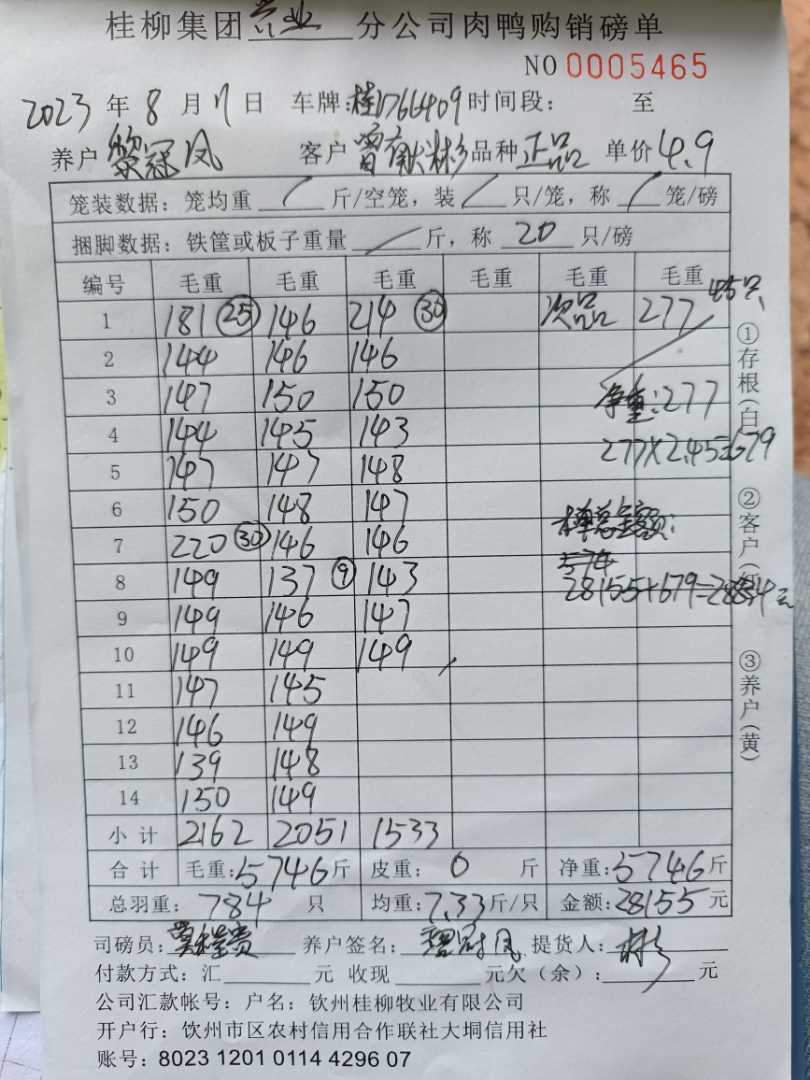 桂柳集团兴业分公司肉鸭购销磅单
NO 0005465
2023年8月17日 车牌:桂D766409 时间段: 至
养户 黎冠凤 客户 曾献彬 品种 正品 单价 4.9
笼装数据: 笼均重 / 斤/空笼, 装 / 只/笼, 称 / 笼/磅
捆脚数据: 铁筐或板子重量 / 斤, 称 20 只/磅
编号 毛重 毛重 毛重 毛重 毛重 毛重
1 181 (25) 146 214 (30) 次品 277 45只
2 144 146 146
3 147 150 150 净重:277
4 144 145 143 277×2.45=679
5 147 147 148
6 150 148 147 总金额:
7 220 (30) 146 146 574
8 149 137 (9) 143 28155+679=28834元
9 149 146 147
10 149 149 149
11 147 145
12 146 149
13 139 148
14 150 149
小计 2162 2051 1533
合计 毛重:5746斤 皮重: 0 斤 净重:5746斤
总羽重: 784 只 均重:7.33斤/只 金额:28155元
司磅员: 养户签名: 黎冠凤 提货人: 彬
付款方式: 汇 元 收现 元欠(余): 元
公司汇款帐号: 户名: 钦州桂柳牧业有限公司
开户行: 钦州市区农村信用合作联社大垌信用社
账号: 8023 1201 0114 4296 07
①存根(白)
②客户(红)
③养户(黄)